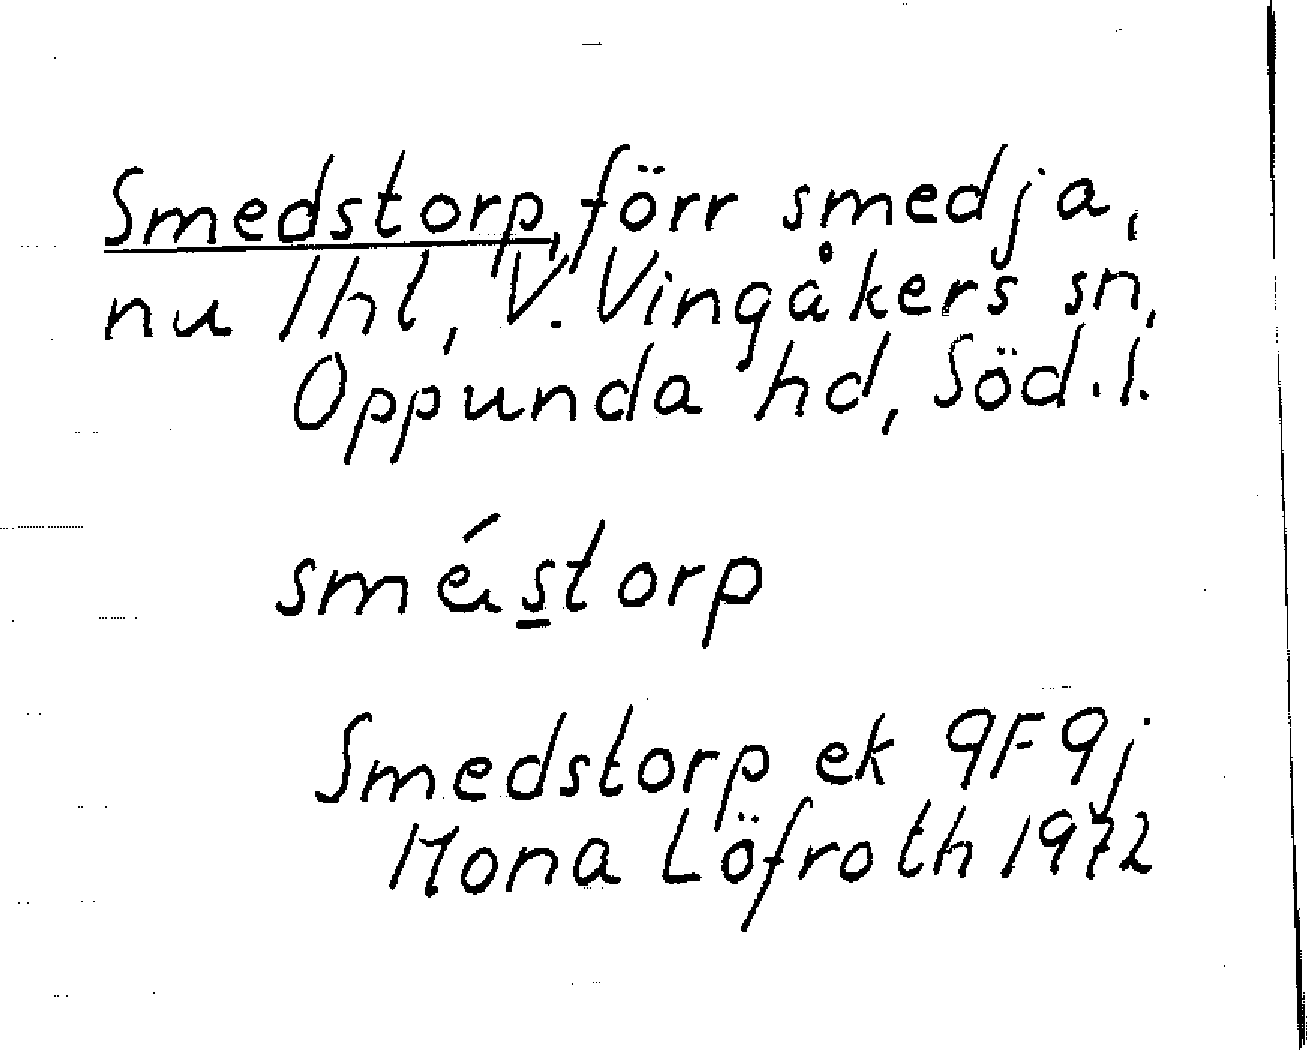 Smedstorp, förr smedja,
nu lhl, V. Vingåkers sn,
Oppunda hd, Söd.l.
sméstorp
Smedstorp ek 9F9j
Mona Löfroth 1972